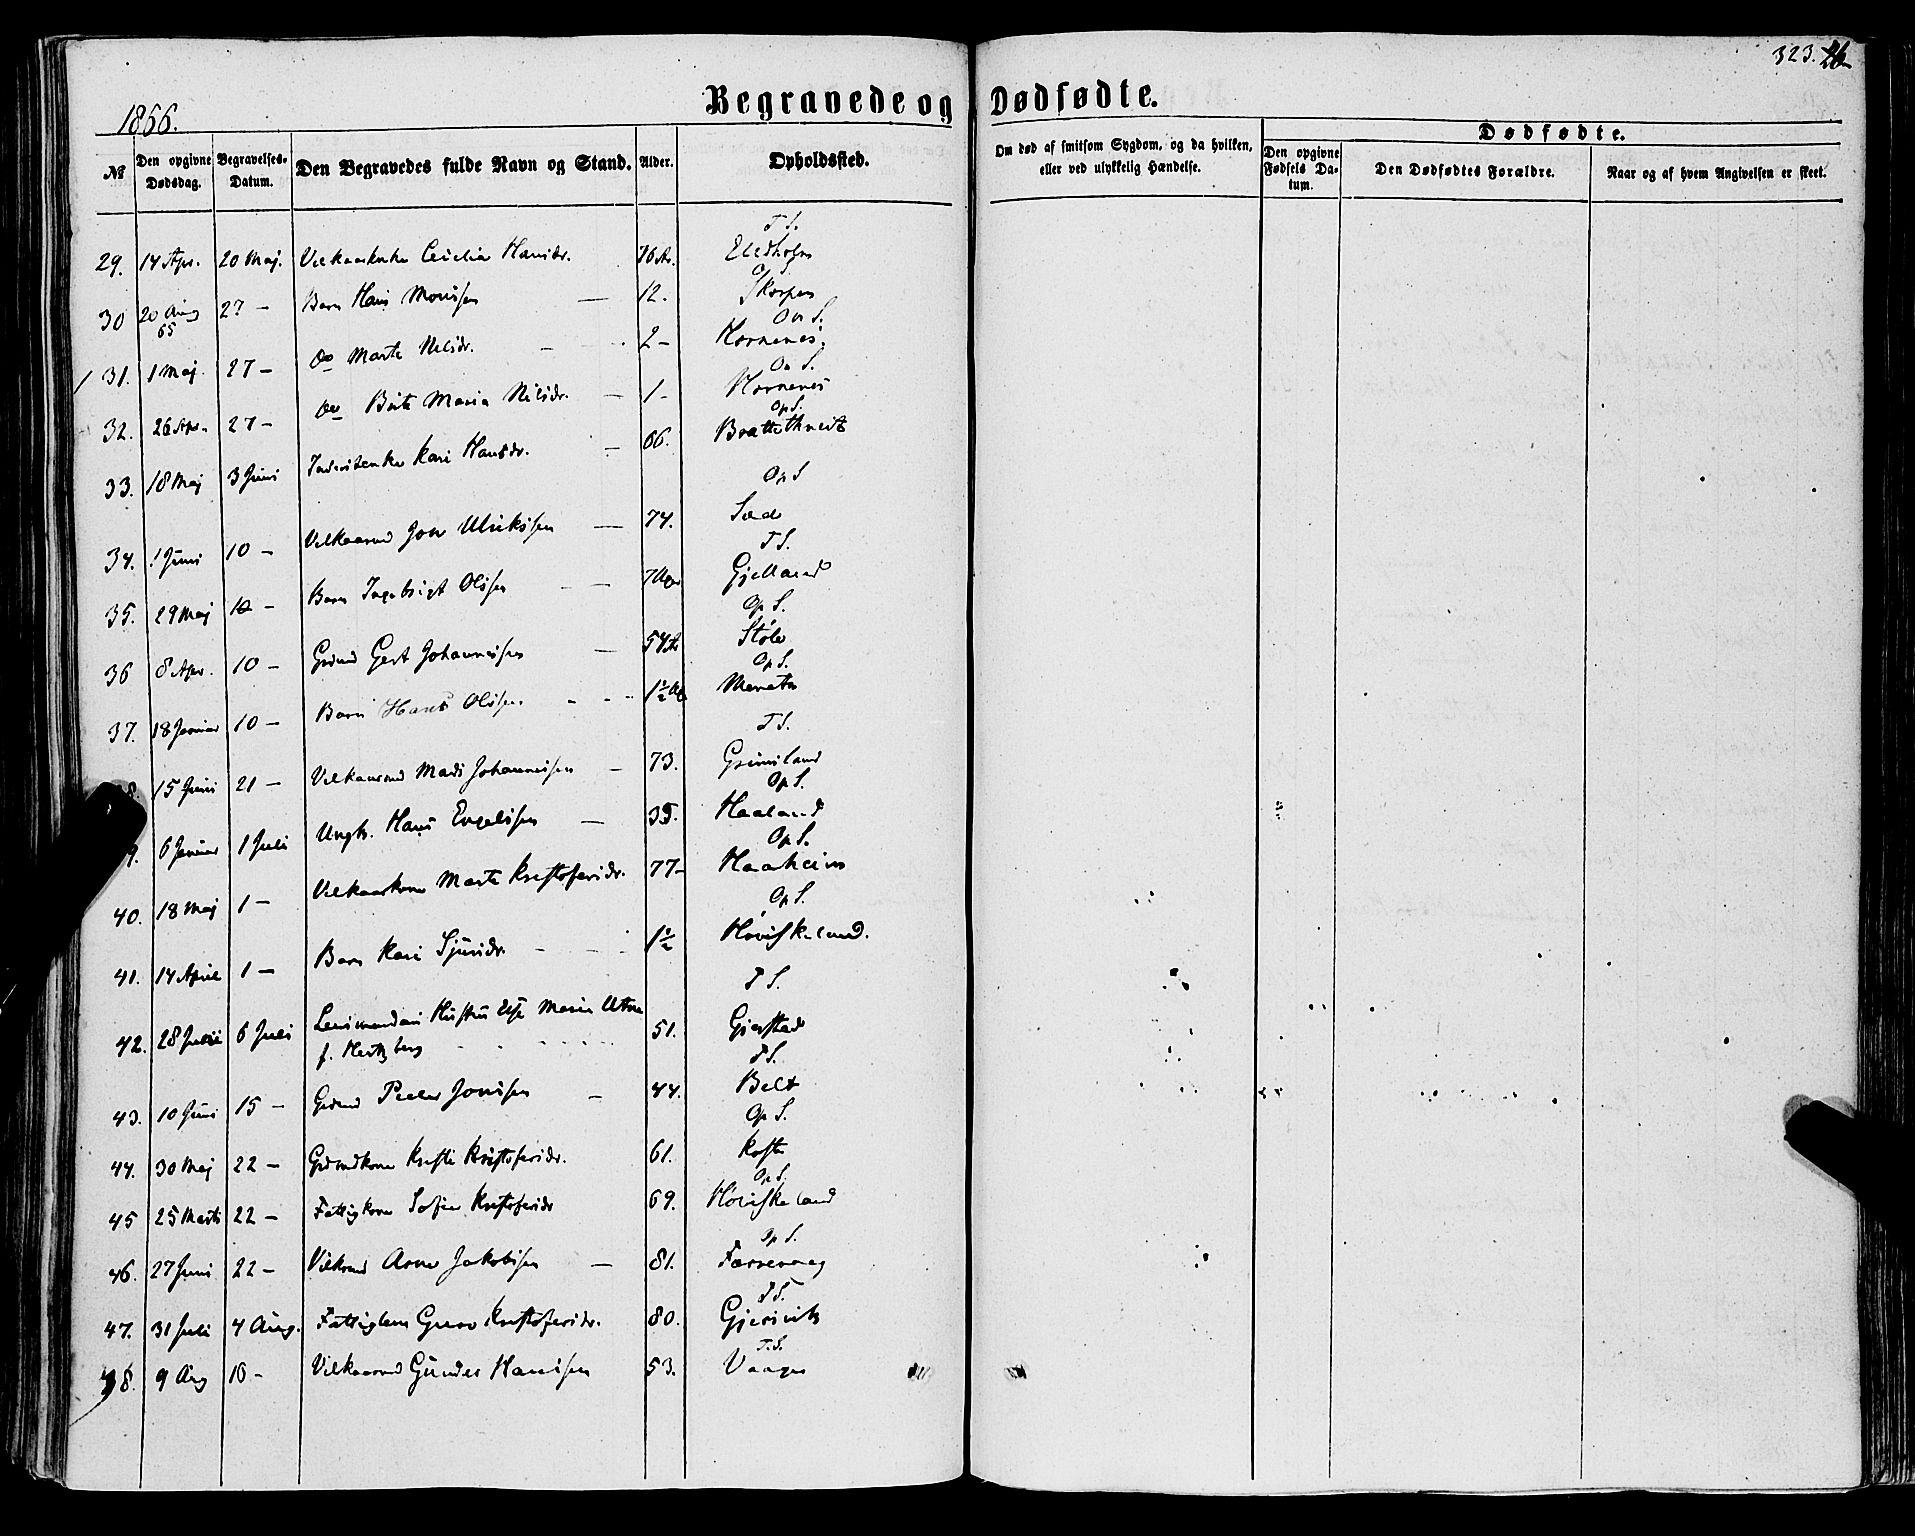 323. 26
1866.
Begravede og Dødfødte.
№ Den opgivne Dødsdag. Begravelses-Datum. Den Begravedes fulde Navn og Stand. Alder. Opholdsted. Om død af smitsom Sygdom, og da hvilken, eller ved ulykkelig Hændelse. Dødfødte. Den opgivne Fødsels Datum. Den Dødfødtes Forældre. Naar og af hvem Angivelsen er skeet.
T S.
29. 14 Apr. 20 Maj. Hansdr. 76 Ar.
30 20 Aug 65 27 – Barn Hans Monsen — 12. Skorpen
Os S.
31. 1 Maj 27 – do Marta Nilsdr. – 2 – Hornenes.
Os S.
32. 26 Apr. 27 – do Brita Maria Nilsdr. – 1 – Hornenes
Op S.
33. 18 Maj 3 Juni Kari Hansdr. – 66.
Op S
34. 1 Juni 10 – Vilkaarmd Jon Ulriksen — 74.
T S.
35. 29 Maj 10 – Barn Ingebrigt Olsen — 7 Gjelland
Op S.
36 8 Apr. 10 – Grdmd Gert Johannesen – 54 Ar Støle
Op S.
37. 18 Januar 10 – Barn Hans Olsen – 1½
T S.
38. 15 Juni 21 – Vilkaarmd Mads Johannesen – 73. Grimsland
Op S.
39. 6 Januar 1 Juli Ungk. Hans Engelsen — 35. Haaland
Op S.
40. 18 Maj 1 – Vilkaarkone Marta Kristofersdr. 77 – Haaheim
Op S.
41. 14 April 1 – Barn Kari Sjursdr. – 1½ Høviskeland.
T S.
42. 28 Juni 6 Juli Lensmandens Hustru Maria Utne 51. Gjerstad
f. Hertzberg
T S.
43. 10 Juni 15 – Grdmd Peder Jonsen – 44. Belt
Op S.
44. 30 Maj 22 – Grdmdkone Kristi Kristofersdr. 61.
Op S.
45 25 Marts 22 – Fattigkone Sofia Kristofersdr 69. Høviskeland
Op S.
46. 27 Juni 22 – Vilkrmd Arne Jakobsen — 81. Færevaag
T S.
47. 31 Juli 4 Aug. Fattiglem Guro Kristofersdr. 80. Gjersvik
T.S.
48. 9 Aug 10 – Vilkaarmd Gunder Hansen 53. Vaage